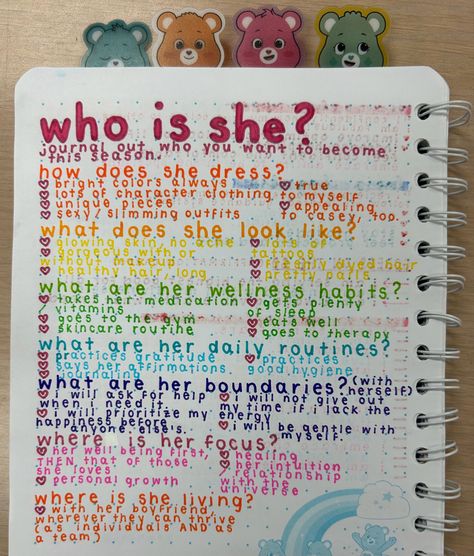 who is she?
journal out who you want to become
this season.
how does she dress?
bright colors always
lots of character clothing
unique pieces
sexy/slimming outfits
true
to myself
appealing
to casey, too.
what does she look like?
glowing skin, no acne
gorgeous with or
without makeup
healthy hair, long
lots of
tattoos
freshly dyed hair
pretty nails
what are her wellness habits?
takes her medication
/ vitamins
goes to the gym
skincare routine
gets plenty
of sleep
eats well
goes to therapy
what are her daily routines?
practices gratitude
says her affirmations.
journaling
practices
good hygiene
what are her boundaries? (with
herself)
i will ask for help
when i need it
i will prioritize my
happiness before
anyone else's.
i will not give out
my time if i lack the
energy
i will be gentle with
myself.
where is her focus?
her well being first,
THEN that of those
she loves
personal growth
healing
her intuition
/ relationship
with the
universe
where is she living?
with her boyfriend,
wherever they can thrive
(as individuals AND as
a team)